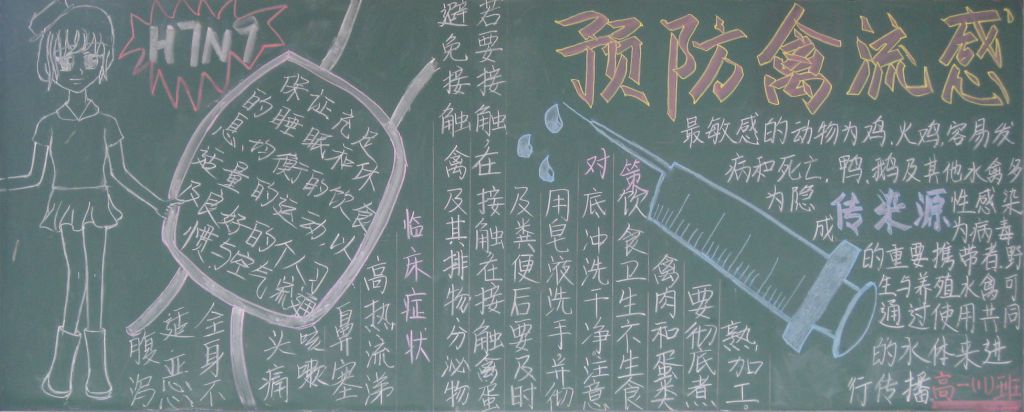 H7N7
保证充足
的睡眠和休
息,均衡的饮食,
适量的运动,以
及良好的个人习
惯与空气流通
临床症状
高热流涕
鼻塞
咳嗽
头痛
全身不
适恶
腹泻
对策
避免接触禽及其排物分泌物
若要接触在接触在接触禽蛋
及粪便后要及时
用皂液洗手并彻
底冲洗干净注意
饮食卫生不生食
禽肉和蛋类
要彻底煮
熟加工。
预防禽流感
传染源
最敏感的动物为鸡,火鸡,容易发
病和死亡,鸭,鹅及其他水禽多
为隐性感染
成为病毒
的重要携带者野
生与养殖水禽可
通过使用共同
的水体来进
行传播
高一(11)班